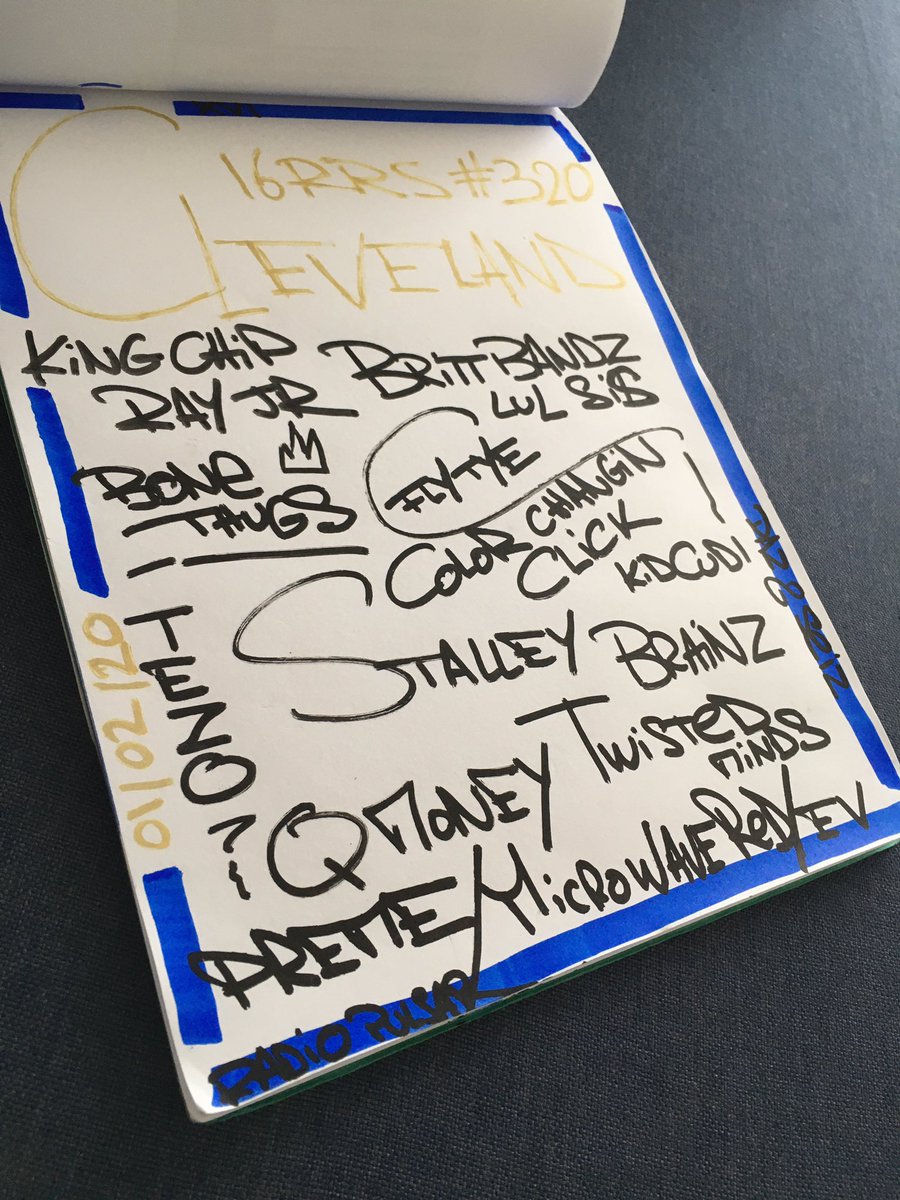 16RRS #320
CLEVELAND
KING CHIP
BRITT BANDZ
RAY JR
LUL SIS
BONE
THUGS
FLY TYE
COLOR CHANGIN
CLICK
KID CUDI
TENO
STALLEY
BRAINZ
TWISTED
MINDS
Q MONEY
PRETTE/MICROWAVE ROD/EV
RADIO PULSAR
01/02/20